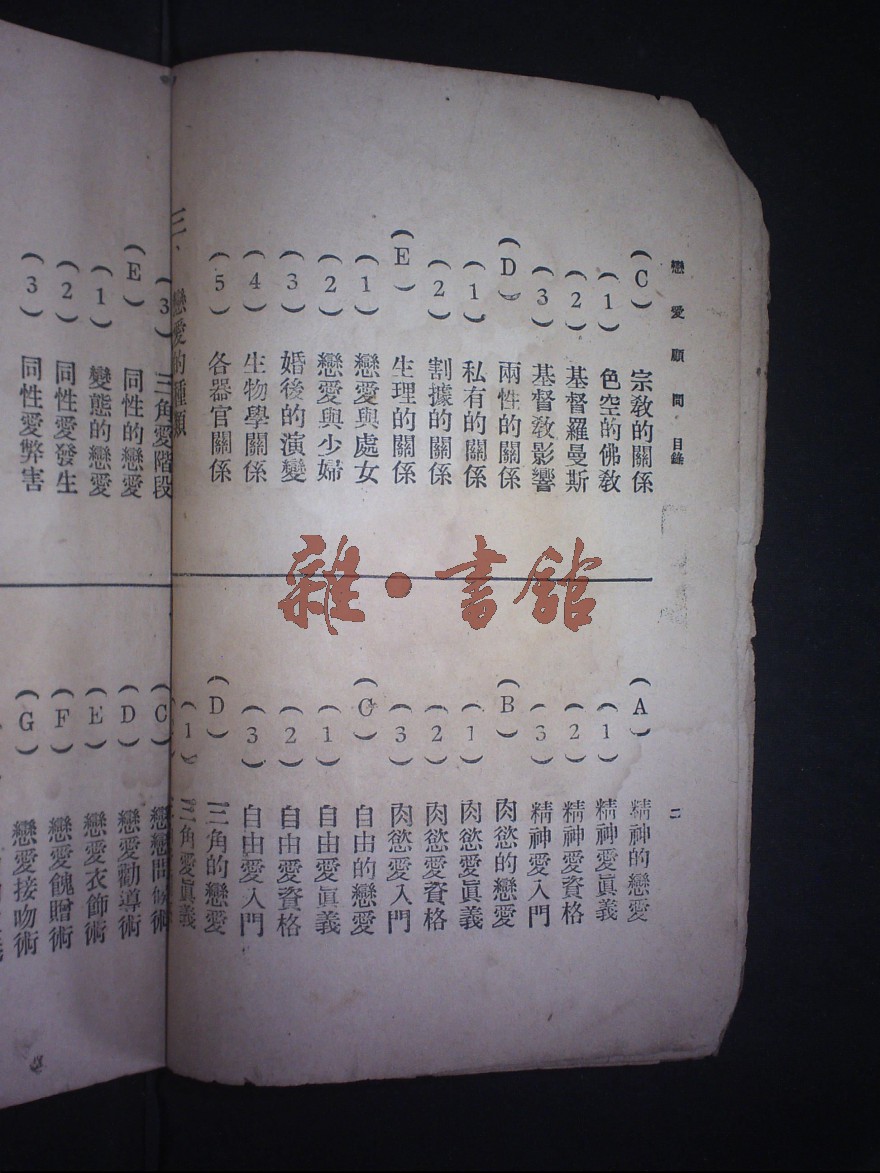 戀愛顧問 目錄
二
(C) 宗教的關係
(1) 色空的佛教
(2) 基督羅曼斯
(3) 基督教影響
(D) 兩性的關係
(1) 私有的關係
(2) 割據的關係
(E) 生理的關係
(1) 戀愛與處女
(2) 戀愛與少婦
(3) 婚後的演變
(4) 生物學關係
(5) 各器官關係
三、戀愛的種類
(A) 精神的戀愛
(1) 精神愛眞義
(2) 精神愛資格
(3) 精神愛入門
(B) 肉慾的戀愛
(1) 肉慾愛眞義
(2) 肉慾愛資格
(3) 肉慾愛入門
(C) 自由的戀愛
(1) 自由愛眞義
(2) 自由愛資格
(3) 自由愛入門
(D) 三角的戀愛
(1) 三角愛眞義
(3) 三角愛階段
(E) 同性的戀愛
(1) 變態的戀愛
(2) 同性愛發生
(3) 同性愛弊害
(C) 戀愛問候術
(D) 戀愛勸導術
(E) 戀愛衣飾術
(F) 戀愛餽贈術
(G) 戀愛接吻術
雜·書館